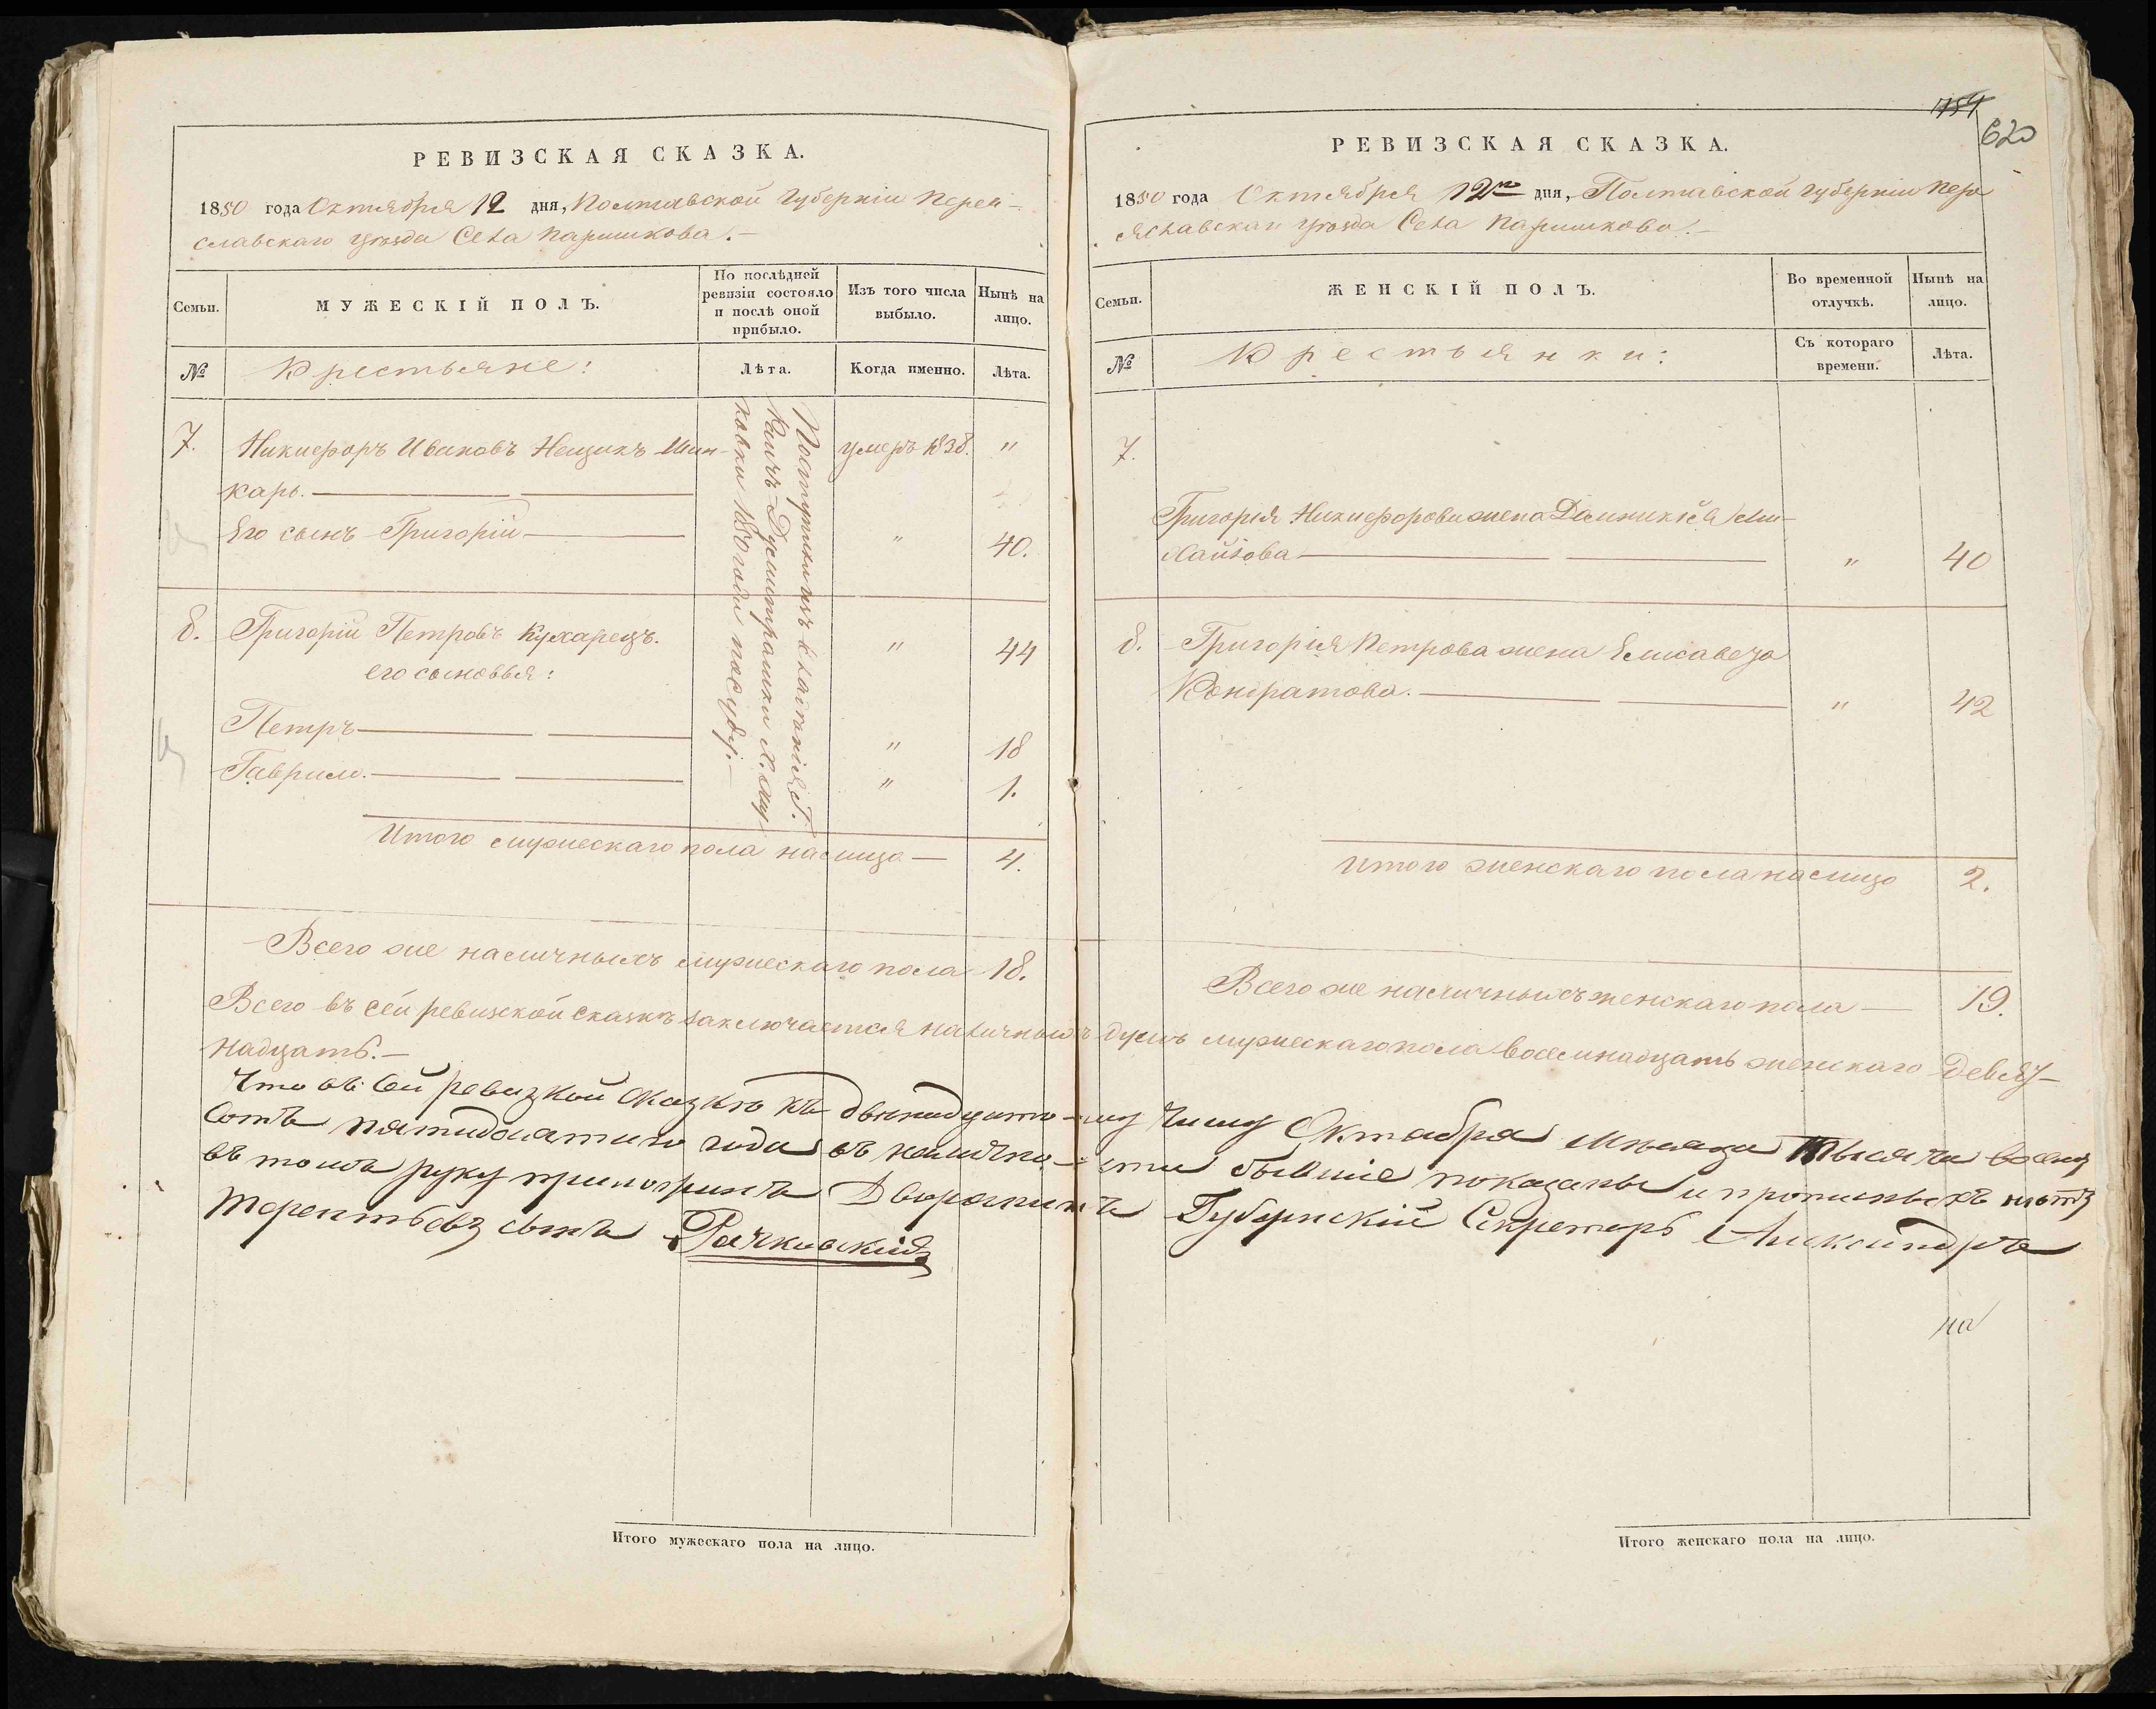 РЕВИЗСКАЯ СКАЗКА.
1850 года Октября 12 дня, Полтавской Губерніи Перея-
славскаго Уѣзда Села Паришкова.-
Семьи.
МУЖЕСКІЙ ПОЛЪ.
По послѣдней ревизіи состояло и послѣ оной прибыло.
Изъ того числа выбыло.
Нынѣ на лицо.
№
Крестьяне:
Лѣта.
Когда именно.
Лѣта.
7.
Никифоръ Ивановъ Нещикъ Шин-
карь.
умеръ 1838.
"
Его сынъ Григорій
"
40.
8.
Григорій Петровъ Кухарецъ.
"
44
его сыновья:
Петръ
"
18
Гаврило.
"
1.
Поступили изъ владѣнія Г.
Дмитрашки
1850 года по суду.-
Итого мужескаго пола налицо
4.
Всего же наличныхъ мужескаго пола
18.
Итого мужескаго пола на лицо.
1754
620
РЕВИЗСКАЯ СКАЗКА.
1850 года Октября 12го дня, Полтавской губерніи Пере
яславскаго Уѣзда Села Паришкова.-
Семьи.
ЖЕНСКІЙ ПОЛЪ.
Во временной отлучкѣ.
Нынѣ на лицо.
№
Крестьянки:
Съ котораго времени.
Лѣта.
7.
Григорія Никифорова жена Домникія Ми-
хайлова
"
40
8.
Григорія Петрова жена Елисавеѳа
Кондратова.
"
42
Итого женскаго пола налицо
2.
Всего же наличныхъ женскаго пола
19.
Всего въ сей ревизской сказкѣ заключается наличныхъ душъ мужескаго пола восемнадцать женскаго девят-
надцать.-
Что въ сей ревизкой сказкѣ къ двенадцато-му числу Октября мѣсяца тысяча восем
сотъ пятидесятаго года въ налично-сти бывшіе показаны и прописныхъ нѣтъ
въ томъ руку приложилъ Дворянинъ Губернскій Секретарь Александръ
Терентьевъ сынъ Рачковскій
на
Итого женскаго пола на лицо.